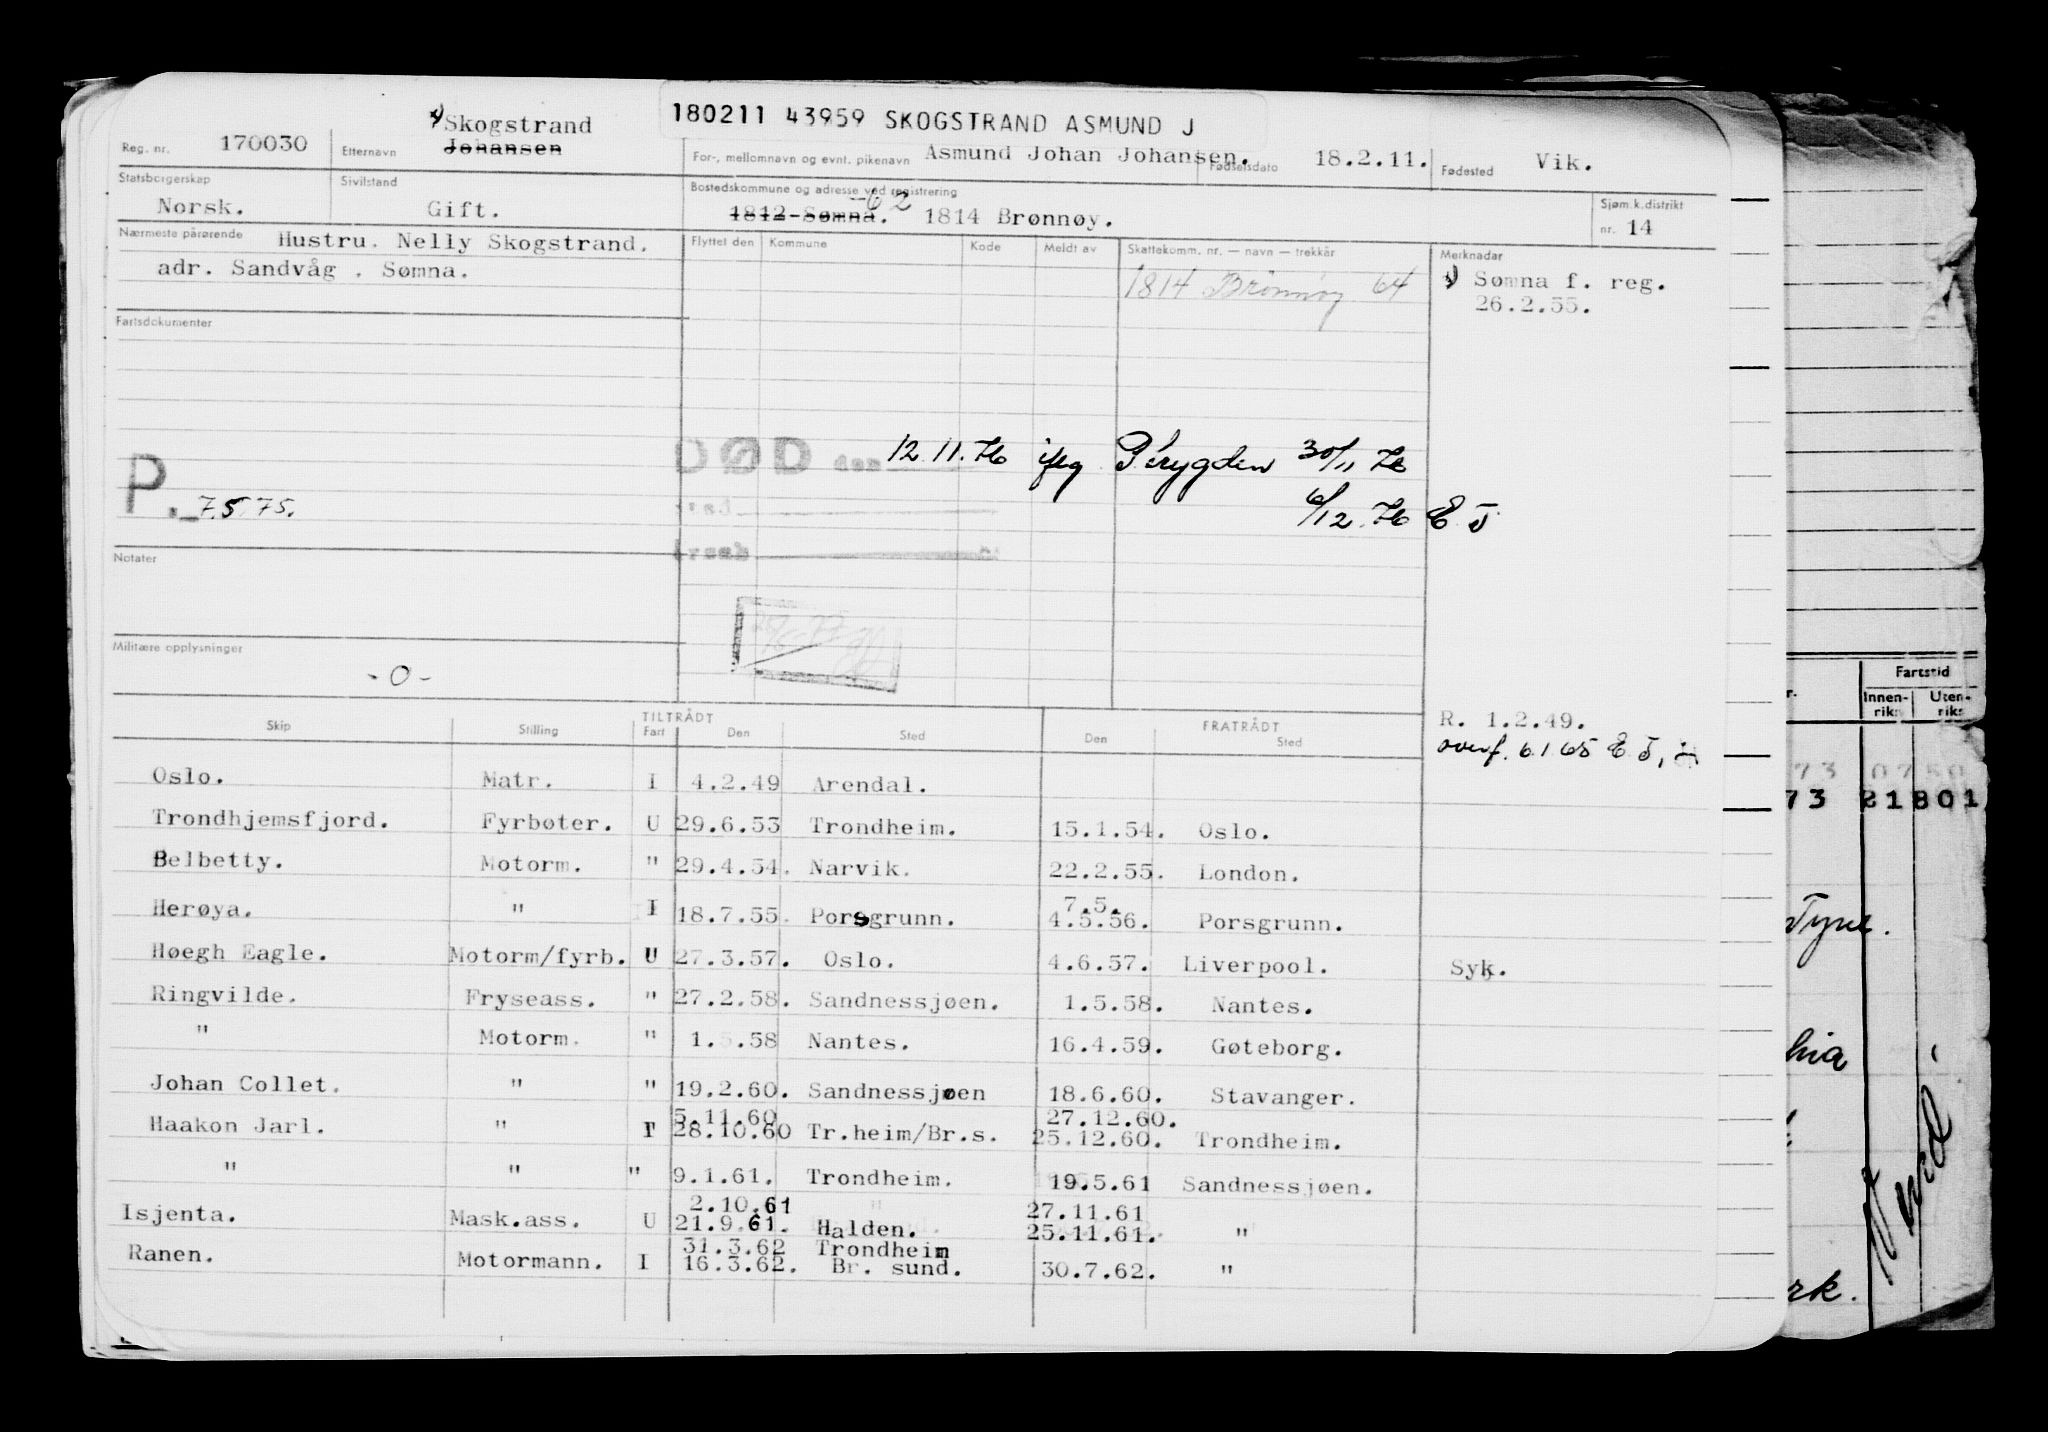 180211 43959 SKOGSTRAND ASMUND J
Reg. nr. 170030 Etternavn Skogstrand Johansen For-, mellomnavn og evnt. pikenavn Asmund Johan Johansen. Fødselsdato 18.2.11. Fødested Vik.
Statsborgerskap Norsk. Sivilstand Gift. Bostedskommune og adresse ved registrering 1812 Sømna. 62 1814 Brønnøy. Sjøm.k.distrikt nr. 14
Nærmeste pårørende Hustru. Nelly Skogstrand. Flyttet den Kommune Kode Meldt av Skattekomm. nr. — navn — trekkår Merknadar
adr. Sandvåg . Sømna. 1814 Brønnøy 64 Sømna f. reg.
26.2.55.
Fartsdokumenter
DØD den 12.11.76 iflg Trygden 30/11 76
P. 7.5.75.
sted 6/12.76 E.J
årsak
Notater
Militære opplysninger
-0-
Skip Stilling TILTRÅDT Fart Den Sted FRATRÅDT Den Sted R. 1.2.49.
overf. 6.1 65 E J,
Oslo. Matr. I 4.2.49 Arendal.
Trondhjemsfjord. Fyrbøter. U 29.6.53 Trondheim. 15.1.54. Oslo.
Belbetty. Motorm. " 29.4.54. Narvik. 22.2.55. London.
7.5.
Herøya. " I 18.7.55. Porsgrunn. 4.5.56. Porsgrunn.
Høegh Eagle. Motorm/fyrb. U 27.3.57. Oslo. 4.6.57. Liverpool. Syk.
Ringvilde. Fryseass. " 27.2.58. Sandnessjøen. 1.5.58. Nantes.
" Motorm. " 1.5.58 Nantes. 16.4.59. Gøteborg.
Johan Collet. " " 19.2.60. Sandnessjøen 18.6.60. Stavanger.
5.11.60 27.12.60.
Haakon Jarl. " I 28.10.60 Tr.heim/Br.s. 25.12.60. Trondheim.
" " " 9.1.61. Trondheim. 19.5.61 Sandnessjøen.
2.10.61 27.11.61
Isjenta. Mask.ass. U 21.9.61. Halden. 25.11.61. "
31.3.62 Trondheim
Ranen. Motormann. I 16.3.62. Br. sund. 30.7.62. "
Fartstid
Innen-riks Uten-riks
73 0750
73 21801
Tyne.